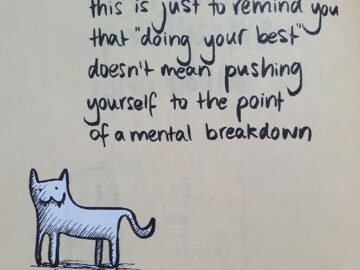 this is just to remind you
that "doing your best"
doesn't mean pushing
yourself to the point
of a mental breakdown